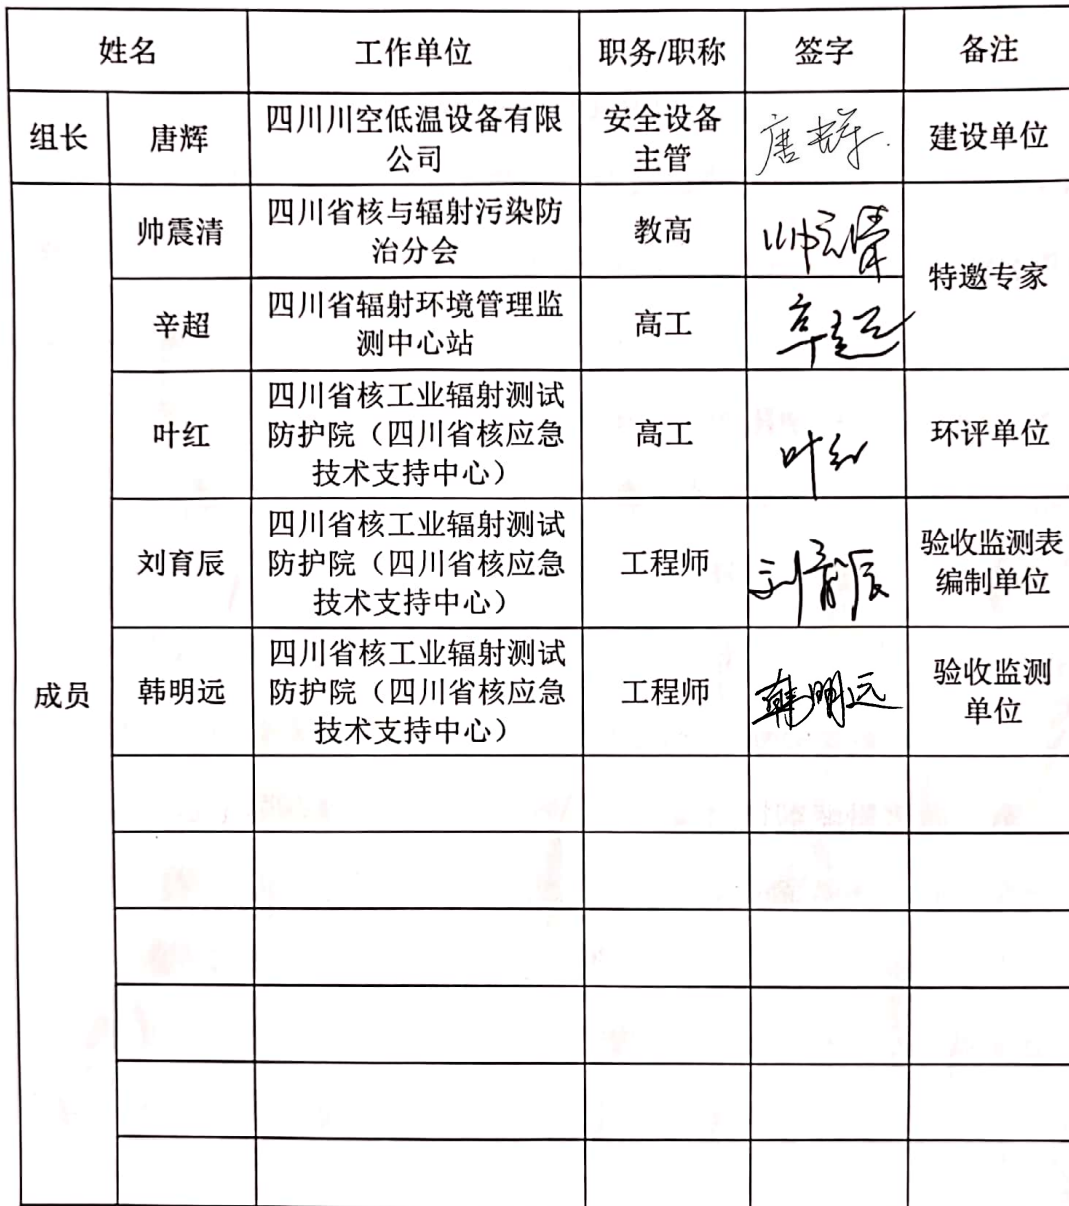 姓名 工作单位 职务/职称 签字 备注
组长 唐辉 四川川空低温设备有限
公司 安全设备
主管 唐辉 建设单位
成员
帅震清 四川省核与辐射污染防
治分会 教高 帅震清 特邀专家
辛超 四川省辐射环境管理监
测中心站 高工 辛超
叶红 四川省核工业辐射测试
防护院（四川省核应急
技术支持中心） 高工 叶红 环评单位
刘育辰 四川省核工业辐射测试
防护院（四川省核应急
技术支持中心） 工程师 刘育辰 验收监测表
编制单位
韩明远 四川省核工业辐射测试
防护院（四川省核应急
技术支持中心） 工程师 韩明远 验收监测
单位